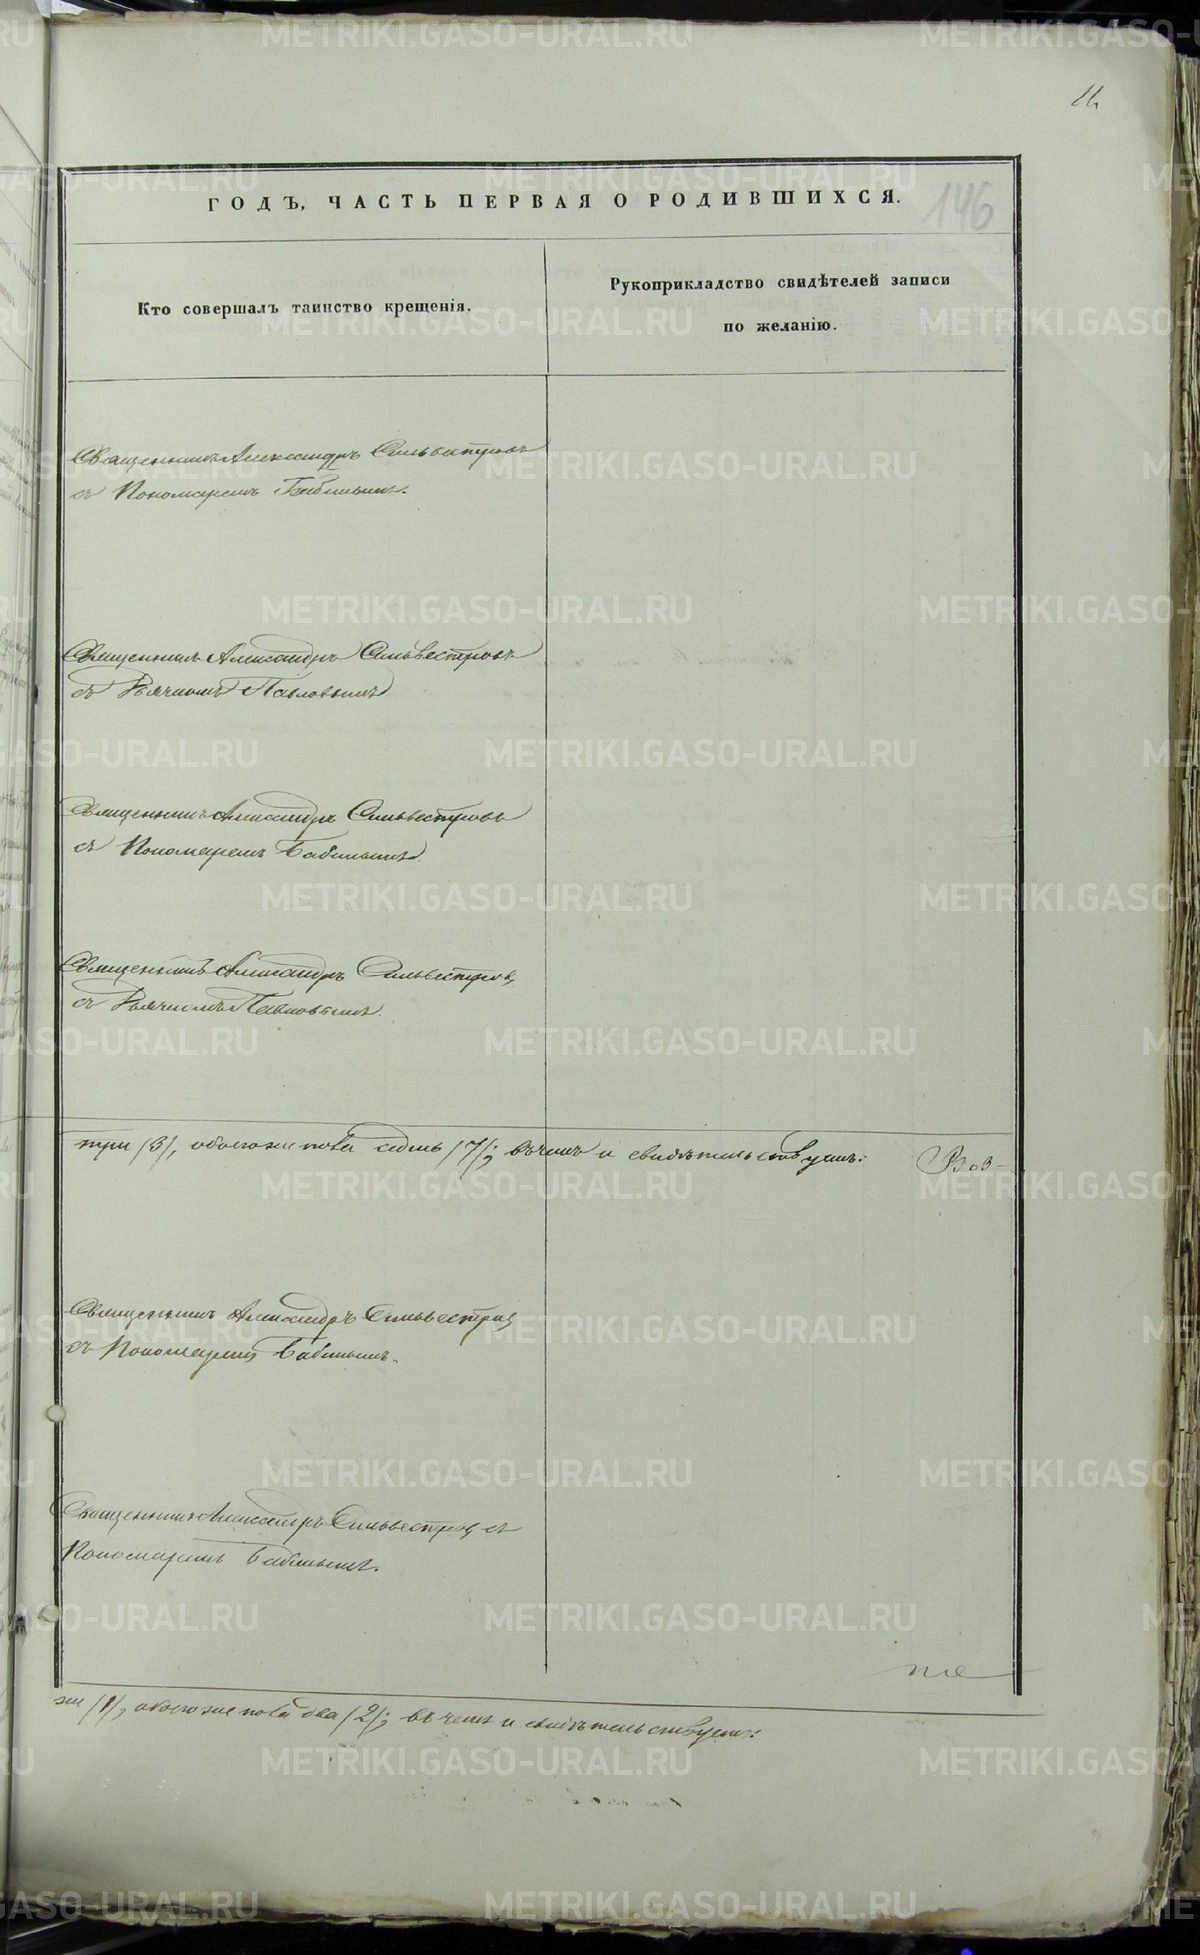 11.
ГОДЪ, ЧАСТЬ ПЕРВАЯ О РОДИВШИХСЯ.
146
Кто совершалъ таинство крещенія.
Рукоприкладство свидѣтелей записи
по желанію.
Священникъ Александръ Сильвестровъ
съ Пономаремъ Бабинымъ.
Священникъ Александръ Сильвестровъ
съ Дьячкомъ Павловымъ
Священникъ Александръ Сильвестровъ
съ Пономаремъ Бабинымъ.
Священникъ Александръ Сильвестровъ
съ Дьячкомъ Павловымъ.
три /3/, обоего же пола седмь /7/; въ чемъ и свидѣтельствуемъ:
Священникъ Александръ Сильвестровъ
съ Пономаремъ Бабинымъ.
Священникъ Александръ Сильвестровъ съ
Пономаремъ Бабинымъ.
/1/, обоего же пола два /2/; въ чемъ и свидѣтельствуемъ:
METRIKI.GASO-URAL.RU